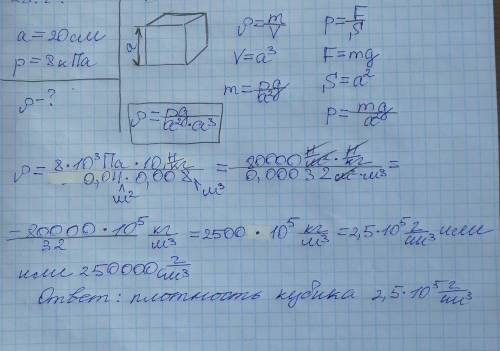 a = 20 см
p = 8 кПа
ρ - ?
a
ρ = m/V
V = a³
m = pg/a²g
ρ = pg/a²g·a³
p = F/S
F = mg
S = a²
p = mg/a²
ρ = 8·10³ Па · 10 Н/кг / 0,04 · 0,008 = 80000 Н/м² · Н/кг / 0,00032 м² · м³ =
м² м³
= 80000 · 10⁵ / 32 кг/м³ = 2500 · 10⁵ кг/м³ = 2,5·10⁵ г/см³ или
или 250000 г/см³
Ответ: плотность кубика 2,5·10⁵ г/см³